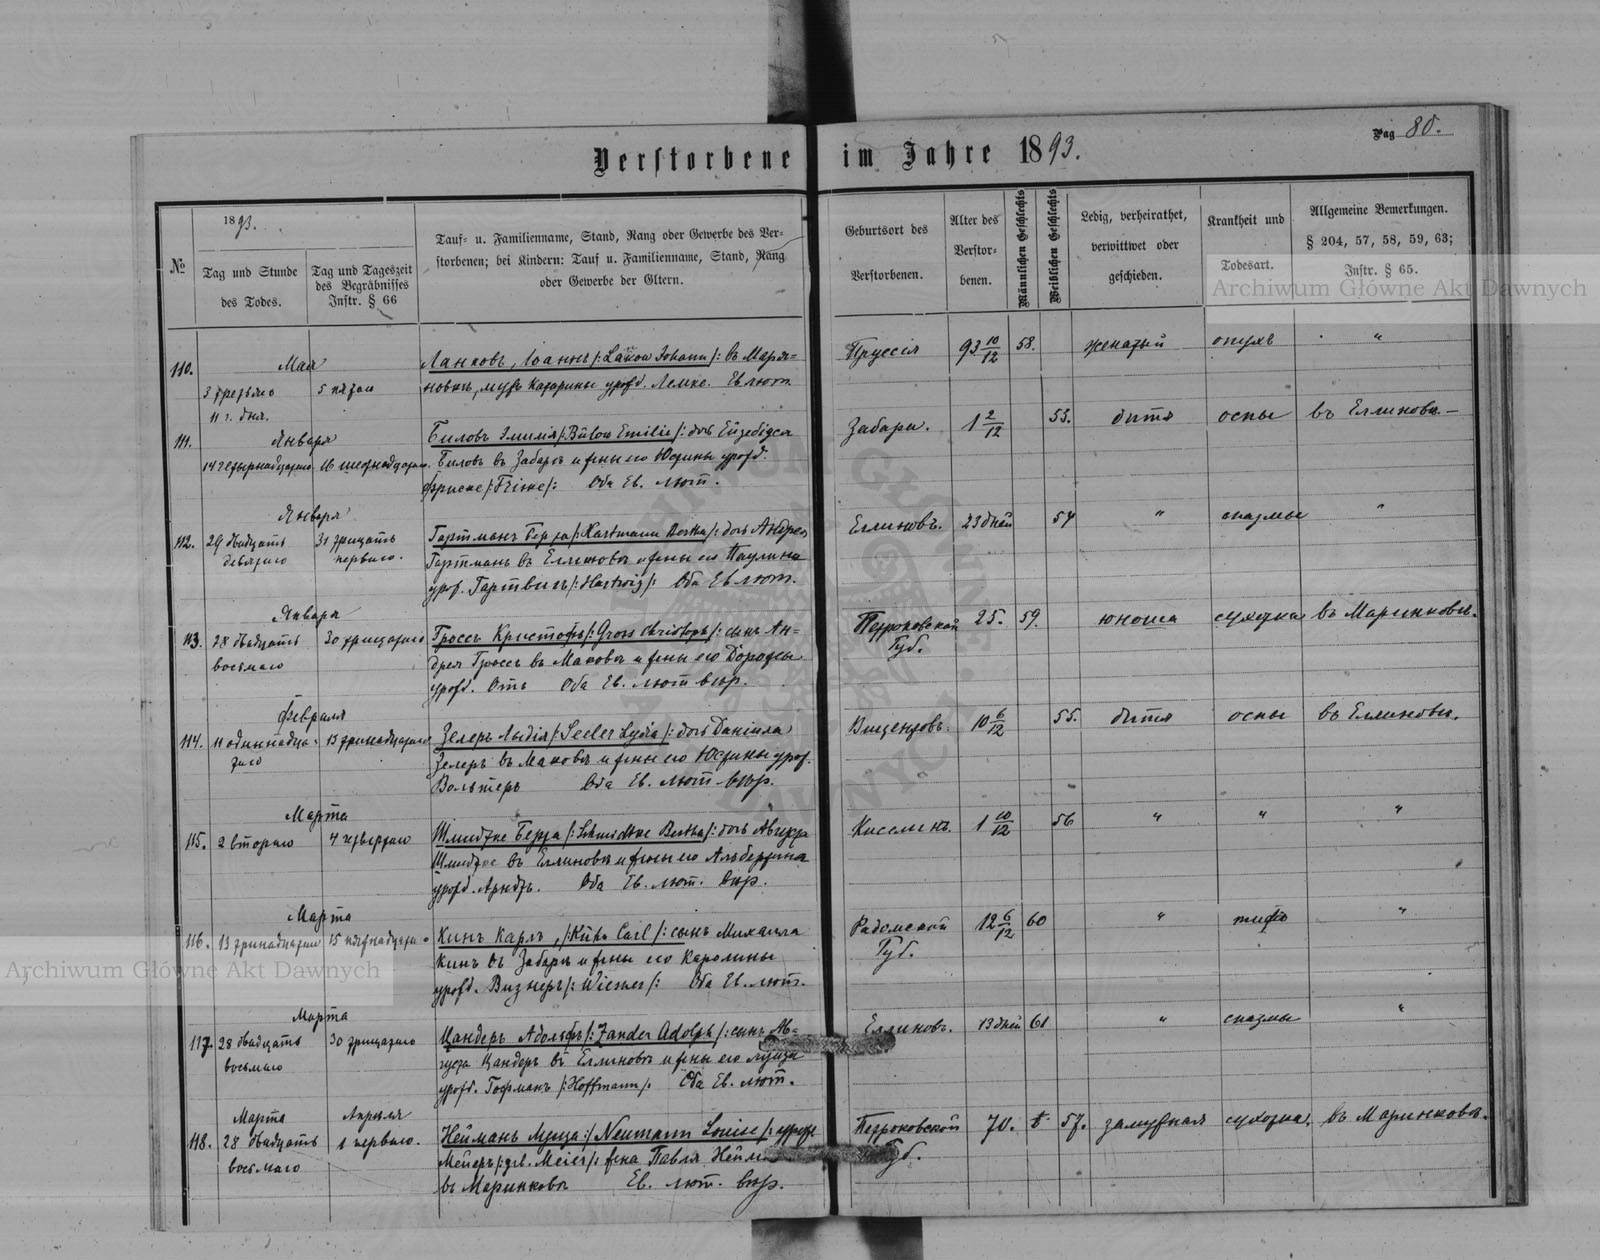 Verstorbene im Jahre 1893.
Pag 80.
№
1893.
Tag und Stunde
des Todes.
Tag und Tageszeit
des Begräbnisses
Instr. § 66
Tauf- u. Familienname, Stand, Rang oder Gewerbe des Ver-
storbenen; bei Kindern: Tauf u. Familienname, Stand, Rang
oder Gewerbe der Eltern.
Geburtsort des
Verstorbenen.
Alter des
Verstor-
benen.
Männlichen Geschlechts
Weiblichen Geschlechts
Ledig, verheirathet,
verwittwet oder
geschieden.
Krankheit und
Todesart.
Allgemeine Bemerkungen.
§ 204, 57, 58, 59, 63;
Instr. § 65.
Archiwum Główne Akt Dawnych
110.
Мая
3 третьяго
11 ч. дня.
5 пятаго
Ланковъ, Іоаннъ /: Johann :/ въ Марья-
новкѣ, мужъ Катарины урожд. Лемке. Ев лют.
Пруссія
93 10/12
58.
женатый
опухъ
"
111.
Января
14 четырнадцатаго
16 шестнадцатаго.
Биловъ Эмилія /: Bülow Emilie :/ дочь
Биловъ въ Забарѣ и жены его Юстины урожд.
Фриске /: Friske /: Оба Ев. лют.
Забара.
1 2/12
55.
дитя
оспы
въ Еллиновѣ.
112.
Января
29 двадцать
девятаго
31 тридцать
перваго.
Гартманъ Берта /: Hartmann Bertha /: дочь Андрея
Гартманъ въ Еллиновѣ и жены его Паулина
урож. Гартвигъ /: Hartwig /: Оба Ев лют.
Еллиновъ.
23 дней
54
"
спазмы
"
113.
Января
28 двадцать
восьмаго
30 тридцатаго
Гроссъ Кристофъ /: Gross Christoph /: сынъ Ан-
дрея Гроссъ въ Маковѣ и жены его Доротеи
урожд. Отъ Оба Ев. лют вѣр.
Петроковской
Губ.
25.
59.
юноша
сухотка
въ Маринковѣ.
114.
Февраля
11 одиннадца-
таго
13 тринадцатаго
Зелеръ Лидія /: Seeler Lydia /: дочь Даніила
Зелеръ въ Маковѣ и жены его Юстины урож.
Вольтеръ Оба Ев. лют вѣр.
10 6/12
55.
дитя
оспы
въ Еллиновѣ.
115.
Марта
2 втораго
4 четвертаго
Шмидтке Берта /: Schmidtke Bertha /: дочь Августа
Шмидтке въ Еллиновѣ и жены его Альбертина
урожд. Арндтъ. Оба Ев. лют. вѣр.
Киселинъ.
1 10/12
56
"
"
"
116.
Марта
13 тринадцатаго
15 пятнадцата-
Кинъ Карлъ, /: Kühn Carl /: сынъ Михаила
Кинъ въ Забарѣ и жены его Каролины
урожд. Визнеръ /: Wiesner /: Оба Ев. лют.
Радомской
Губ.
12 6/12
60
"
тифъ
"
Archiwum Główne Akt Dawnych
117.
Марта
28 двадцать
восьмаго
30 тридцатаго
Цандеръ Адольфъ /: Zander Adolph /: сынъ Ав-
густа Цандеръ въ Еллиновѣ и жены его Луиза
урожд. Гофманъ /: Hoffmann /: Оба Ев. лют.
Еллиновъ.
13 дней
61
"
спазмы
"
118.
Марта
28 двадцать
восьмаго
Апрѣля
1 перваго.
Нейманъ Луиза :/ Neumann Louise /: урожд
Мейеръ /: geb. Meier /: жена Павла
въ Маринковѣ Ев. лют. вѣр.
Петроковской
Губ.
70.
57.
замужная
сухотка.
въ Маринковѣ.